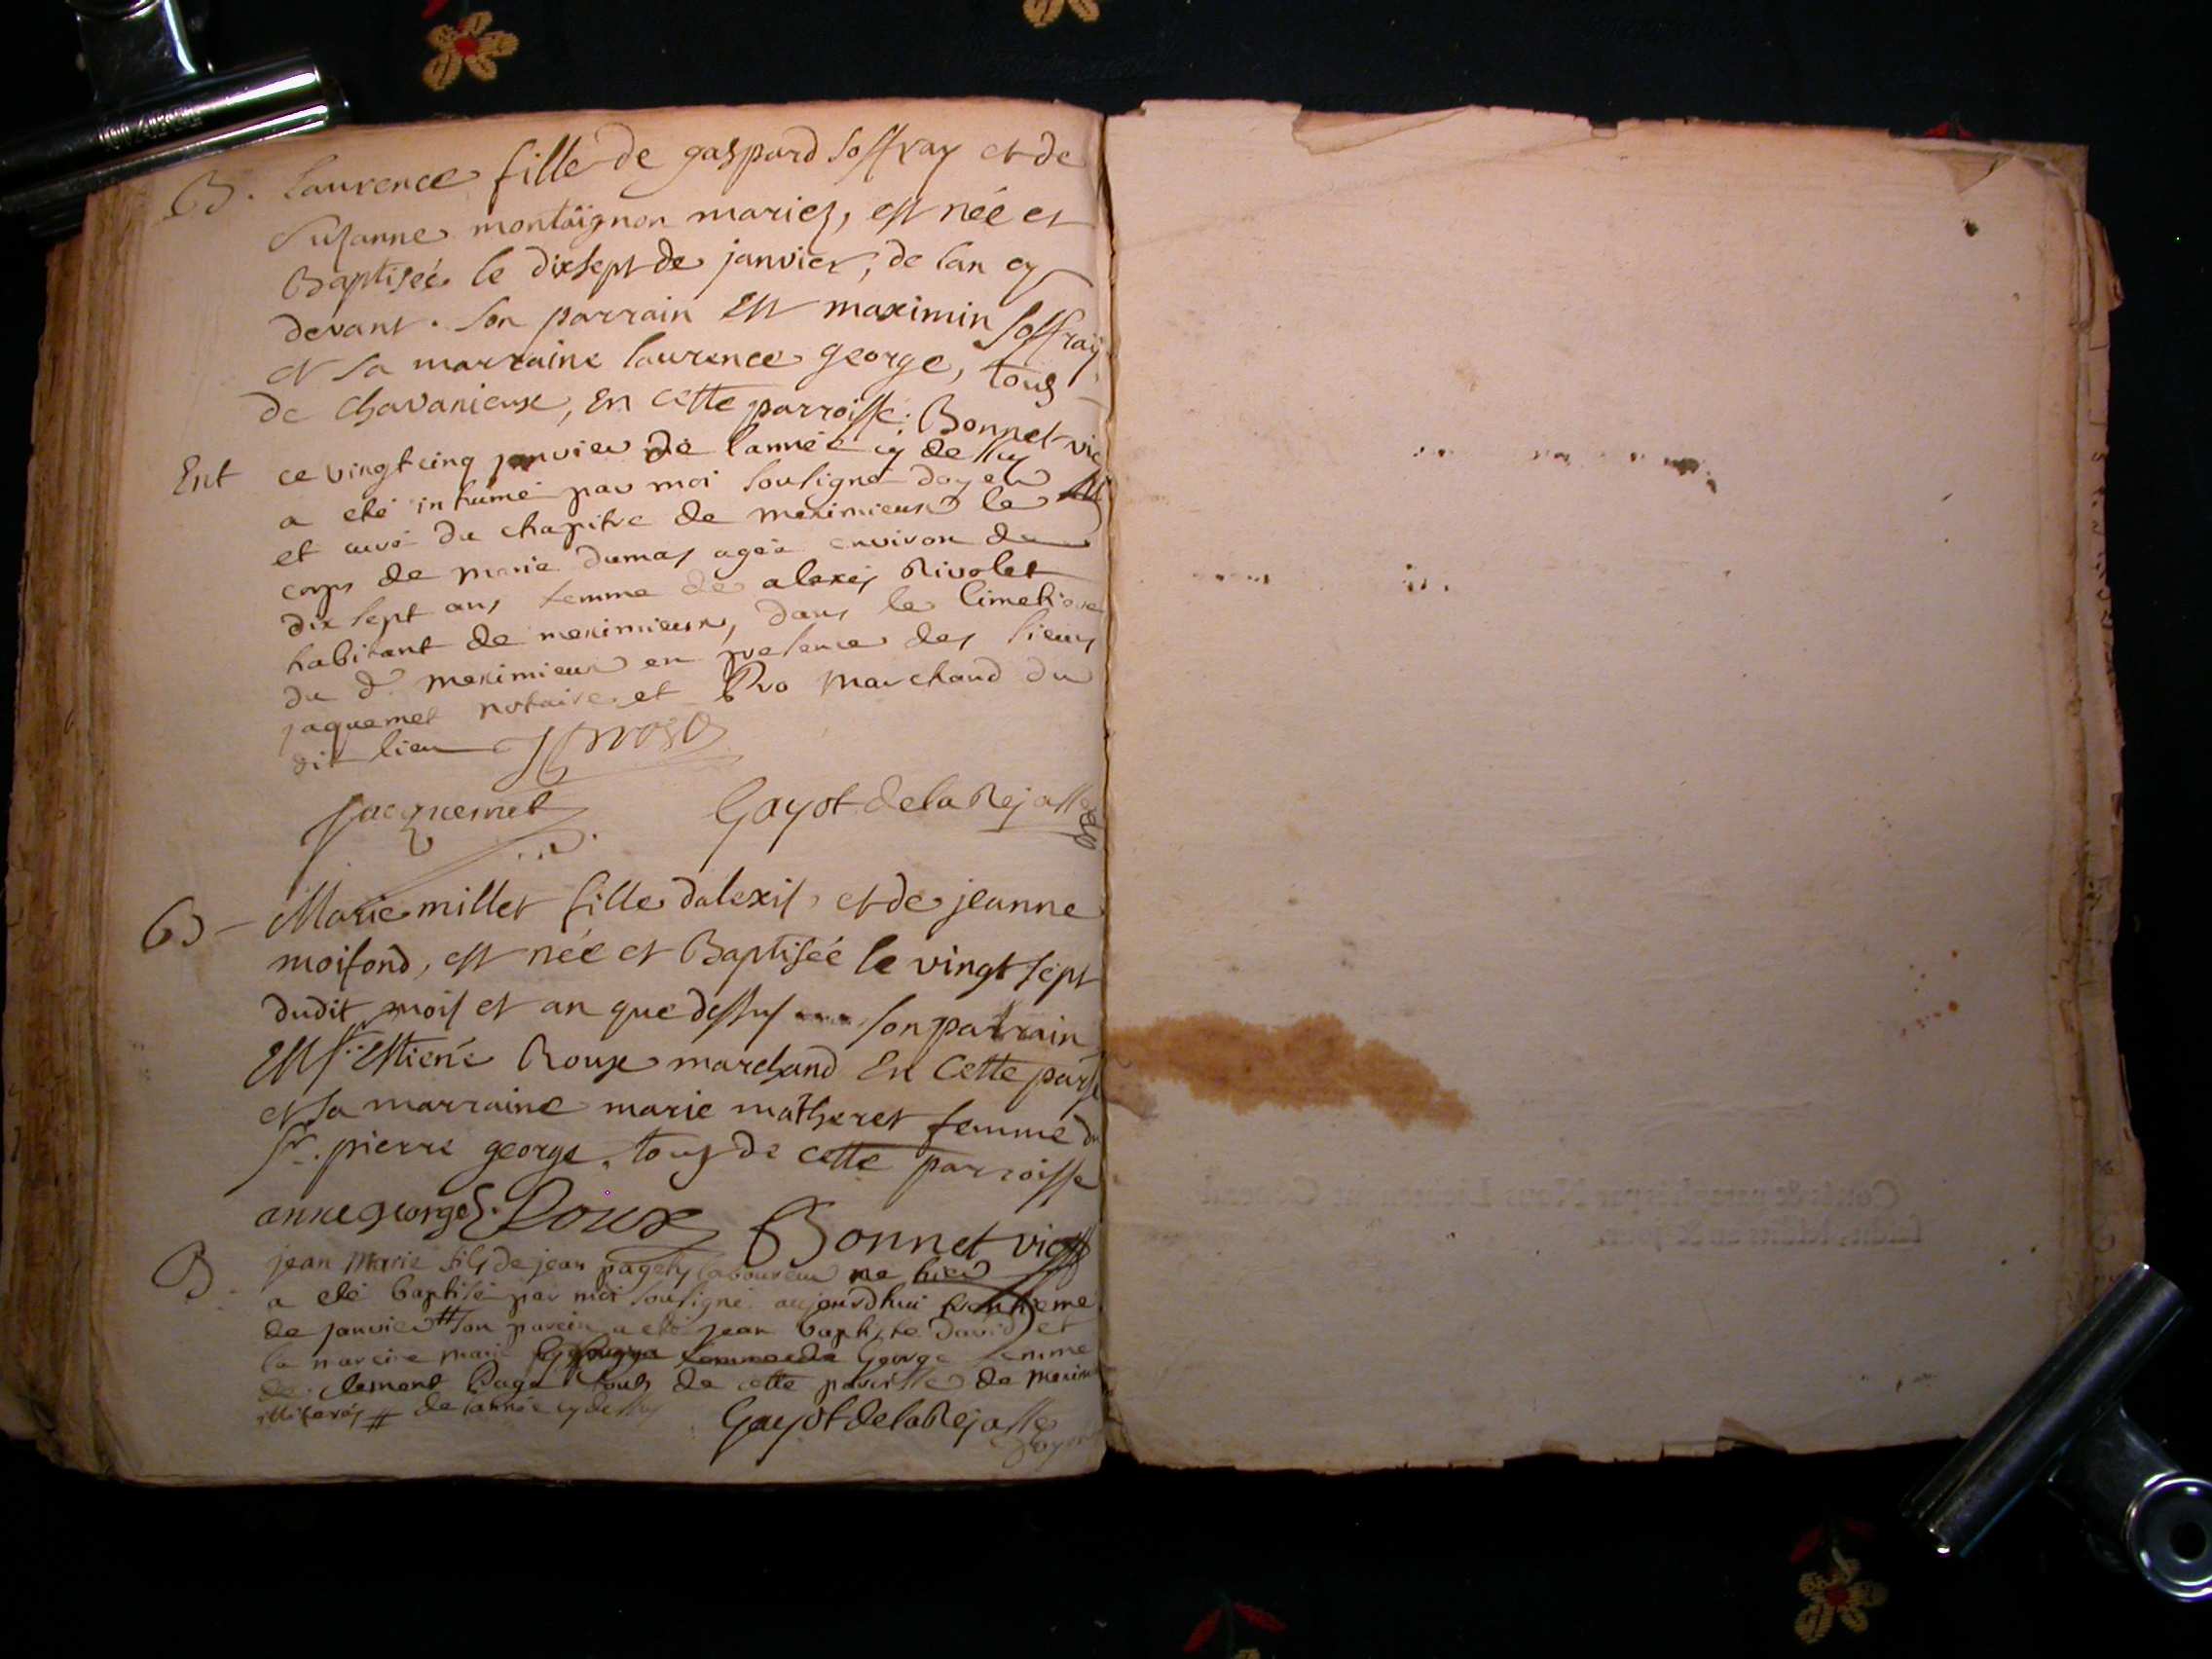 B. Laurence fille de gaspard Soffray et de
Suzanne montaignon mariez, est née et
Baptisée le dixsept de janvier, de lan cy
devant. Son parrain Est maximin Soffray
et sa marraine laurence george, tous
de chavanieux, En cette parroisse. Bonnet vic
Ent ce vingt cinq janvier de l'année cy dessus
a eté inhumé par moi soussigné doyen
et curé du chapitre de meximieux le
corps de marie dumas agée environ de
dix sept ans femme de alexis Rivolet
habitant de meximieux, dans le Cimetiere
du d. meximieux en presence des sieurs
jaquemet notaire et Bro marchand du
dit lieu
Jacquemet Gayot de la Rejasse
B - Marie millet fille dalexis et de jeanne
moifond, est née et Baptisée le vingt sept
dudit mois et an que dessus son parrain
Est sr. Estiene Roux marchand En Cette parse
et sa marraine marie matheret femme du
sr. pierre george, tous de cette parroisse
anne george Roux Bonnet vic
B. jean Marie fils de jean pagety laboureur né hier
a eté baptisé par moi soussigné aujourdhui trentieme
de janvier # son parein a eté jean baptiste david et
la mareine marie George femme
de clement Page tous de cette parroisse de meximieux
illiterés # de l'année cy dessus Gayot de la Rejasse
doyen